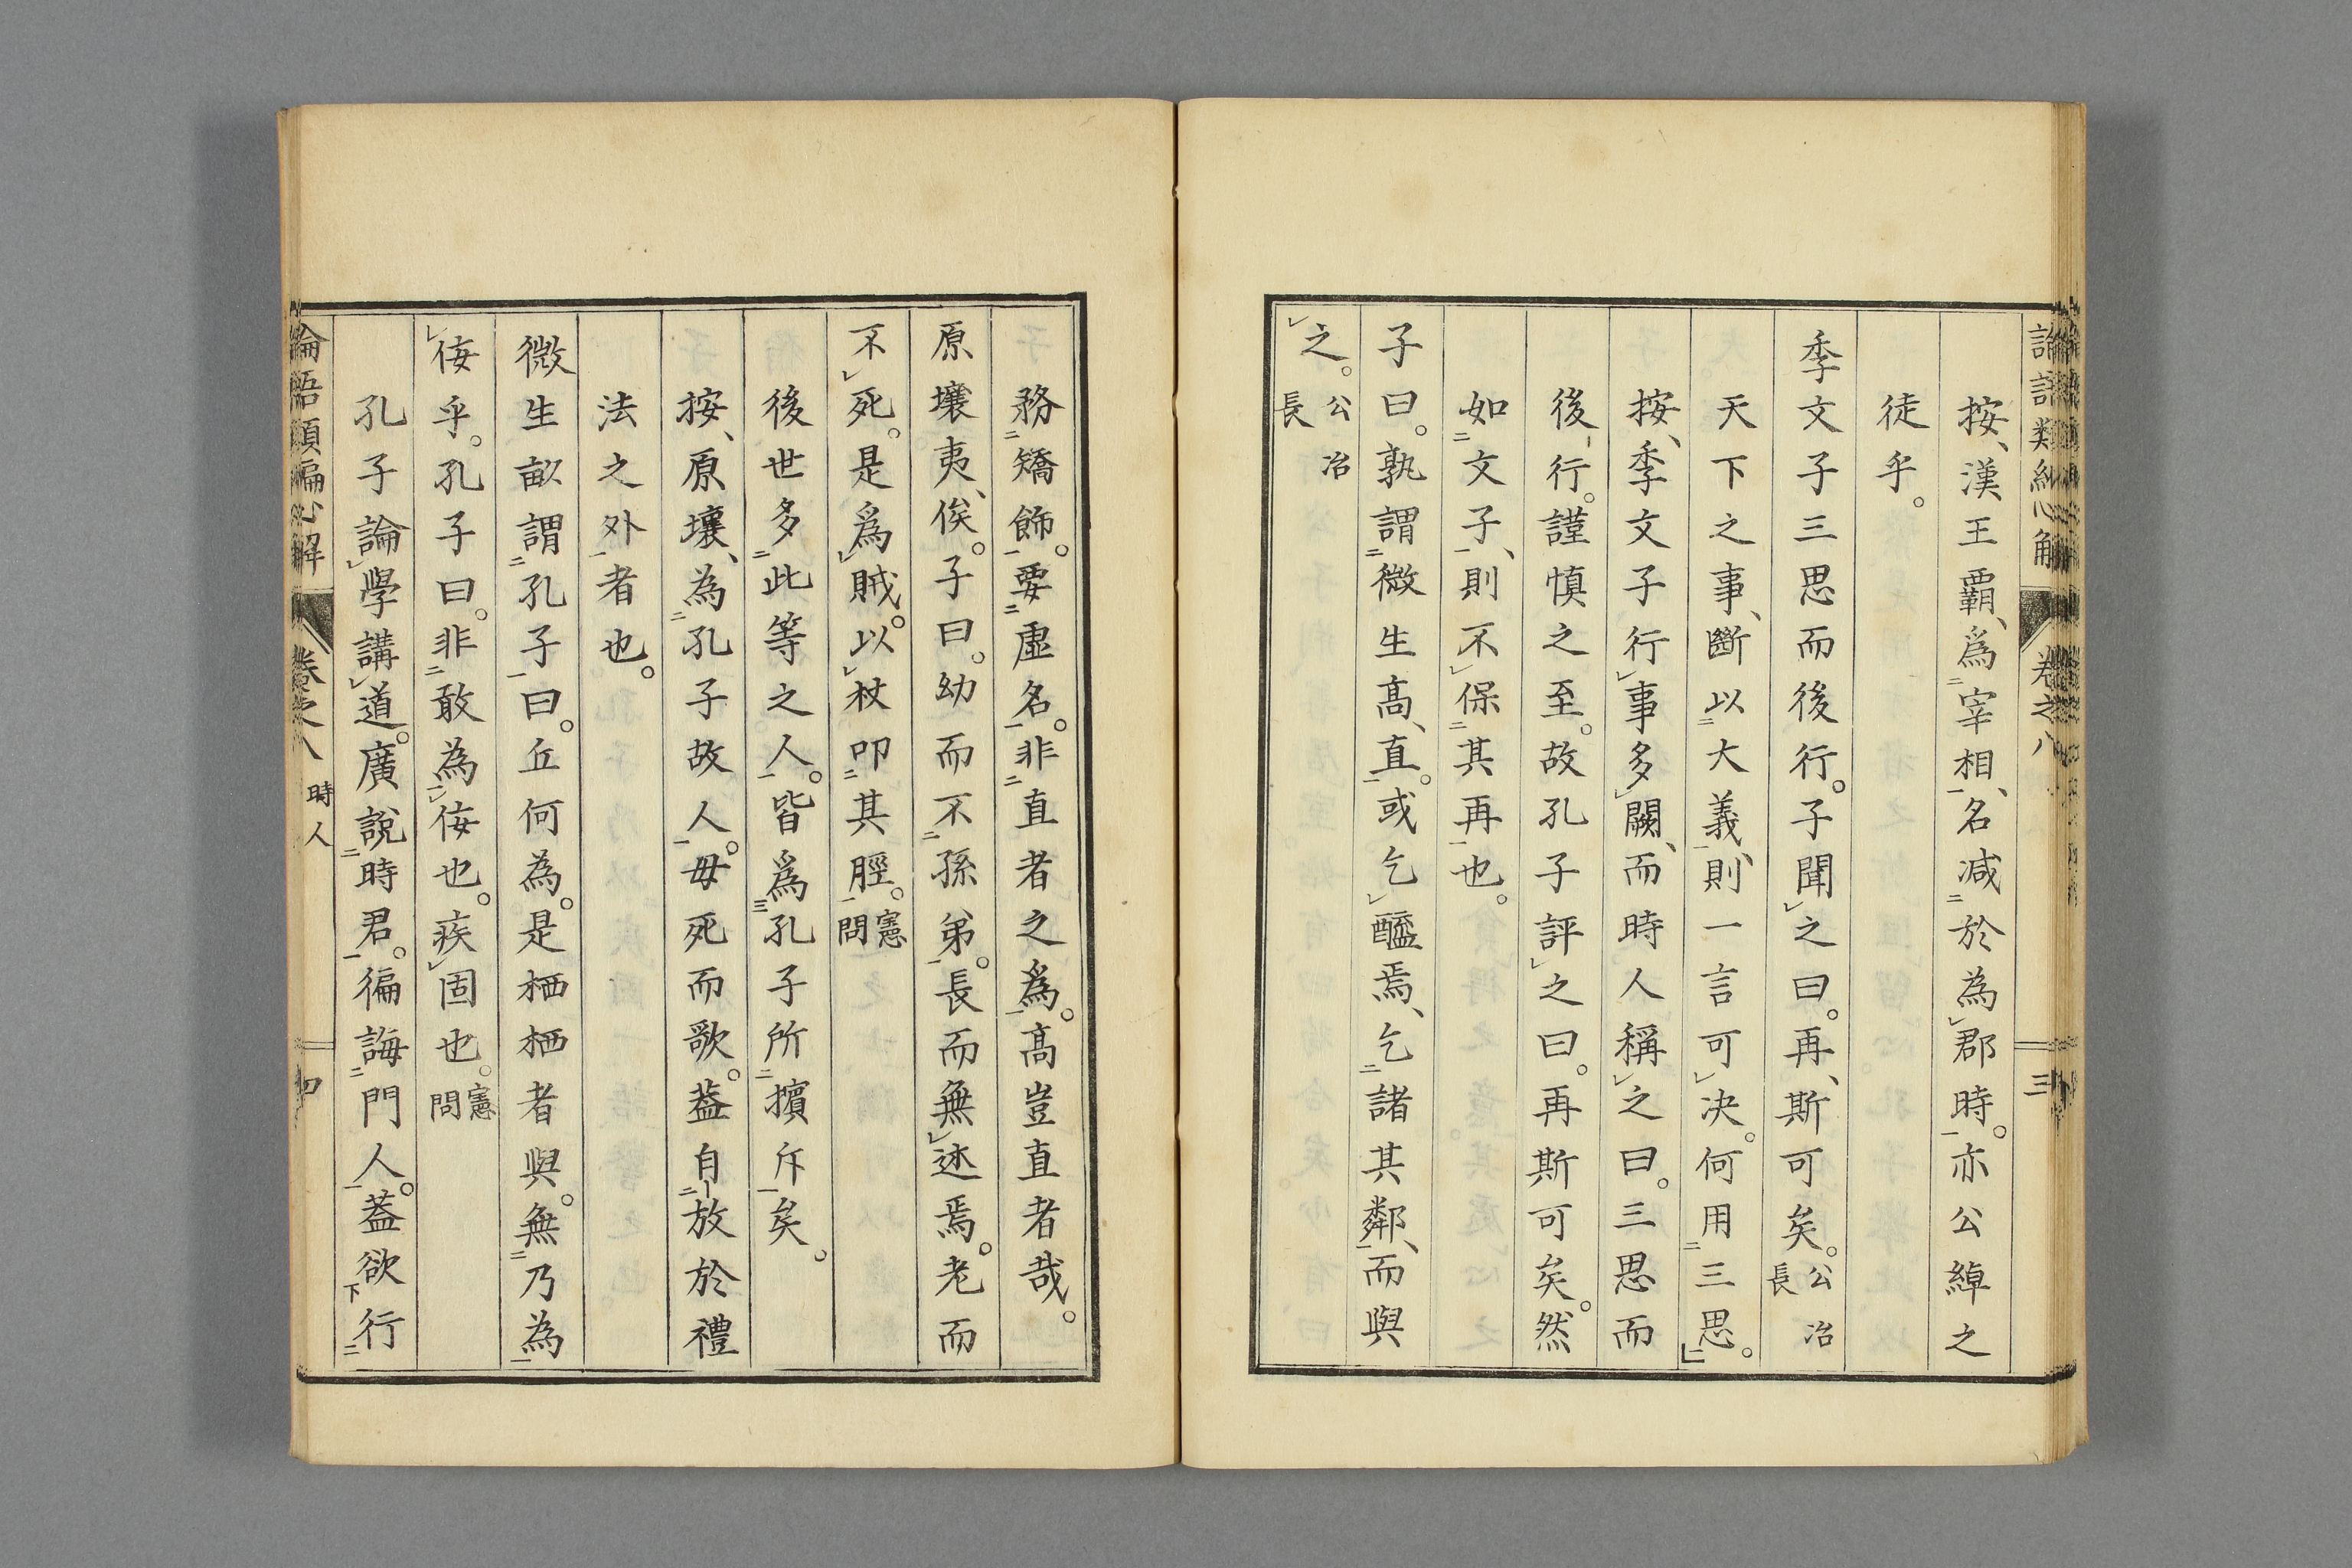 按、漢王覇、爲宰相、名減於為郡時。亦公綽之
徒乎。
季文子三思而後行。子聞之曰。再、斯可矣。公冶長
天下之事、斷以大義、則一言可决。何用三思。
按、季文子行事多闕、而時人稱之曰。三思而
後行。謹慎之至。故孔子評之曰。再斯可矣。然
如文子、則不保其再也。
子曰。孰謂微生高、直。或乞醯焉、乞諸其鄰、而與
之。公冶長
務矯飾。要虛名。非直者之爲。高豈直者哉。
原壤夷俟。子曰。幼而不孫弟。長而無述焉。老而
不死。是爲賊。以杖叩其脛。憲問
後世多此等之人。皆爲孔子所擯斥矣。
按、原壤、為孔子故人。毋死而歌。葢自放於禮
法之外者也。
微生畝謂孔子曰。丘何為。是栖栖者與。無乃為
侫乎。孔子曰。非敢為侫也。疾固也。憲問
孔子論學講道。廣說時君。徧誨門人。葢欲行
論語類編心解 卷之八 時人 四